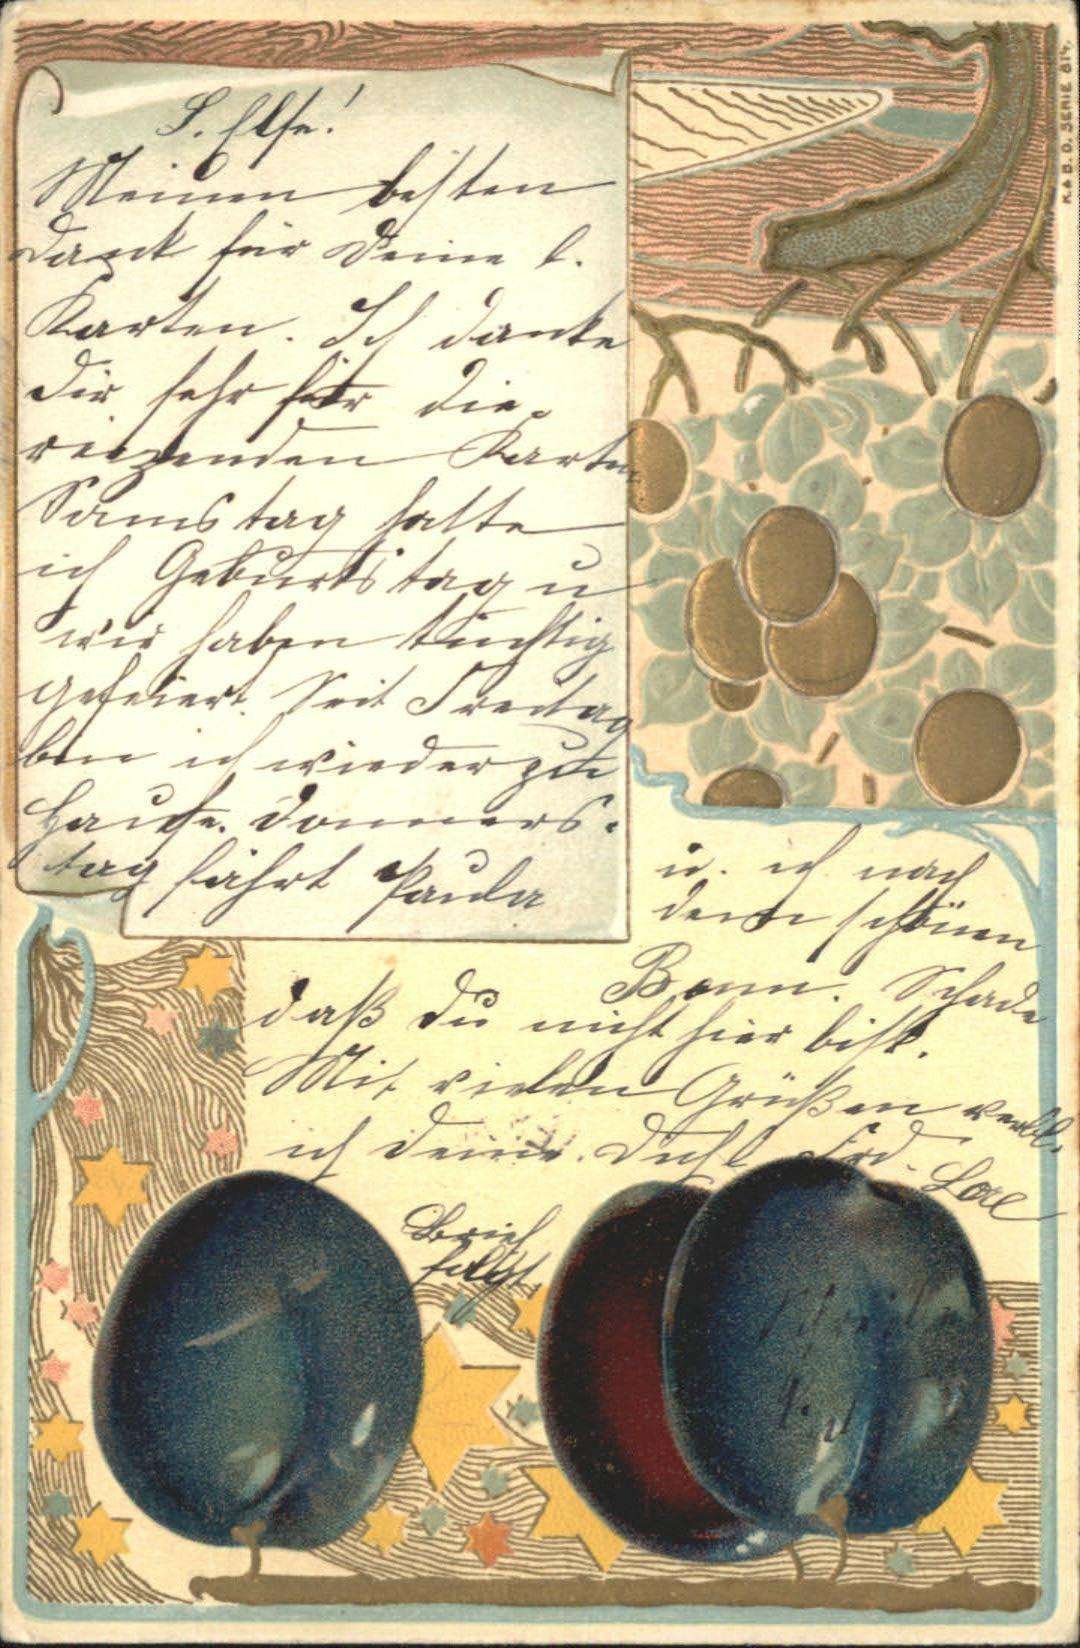 L. Else!
Meinen besten
Dank für Deine l.
Karten. Ich danke
Dir sehr für die
reizenden Karten
Samstag hatte
ich Geburtstag u
wir haben tüchtig
gefeiert. Seit Freitag
bin ich wieder zu
Hause. Donners-
tag fährt Paula
u. ich nach
dem schönen
Bonn. Schade
daß Du nicht hier bist.
Mit vielen Grüßen verbl.
ich Deine Dich
Brief
folgt
K. & B. D. SERIE 814.